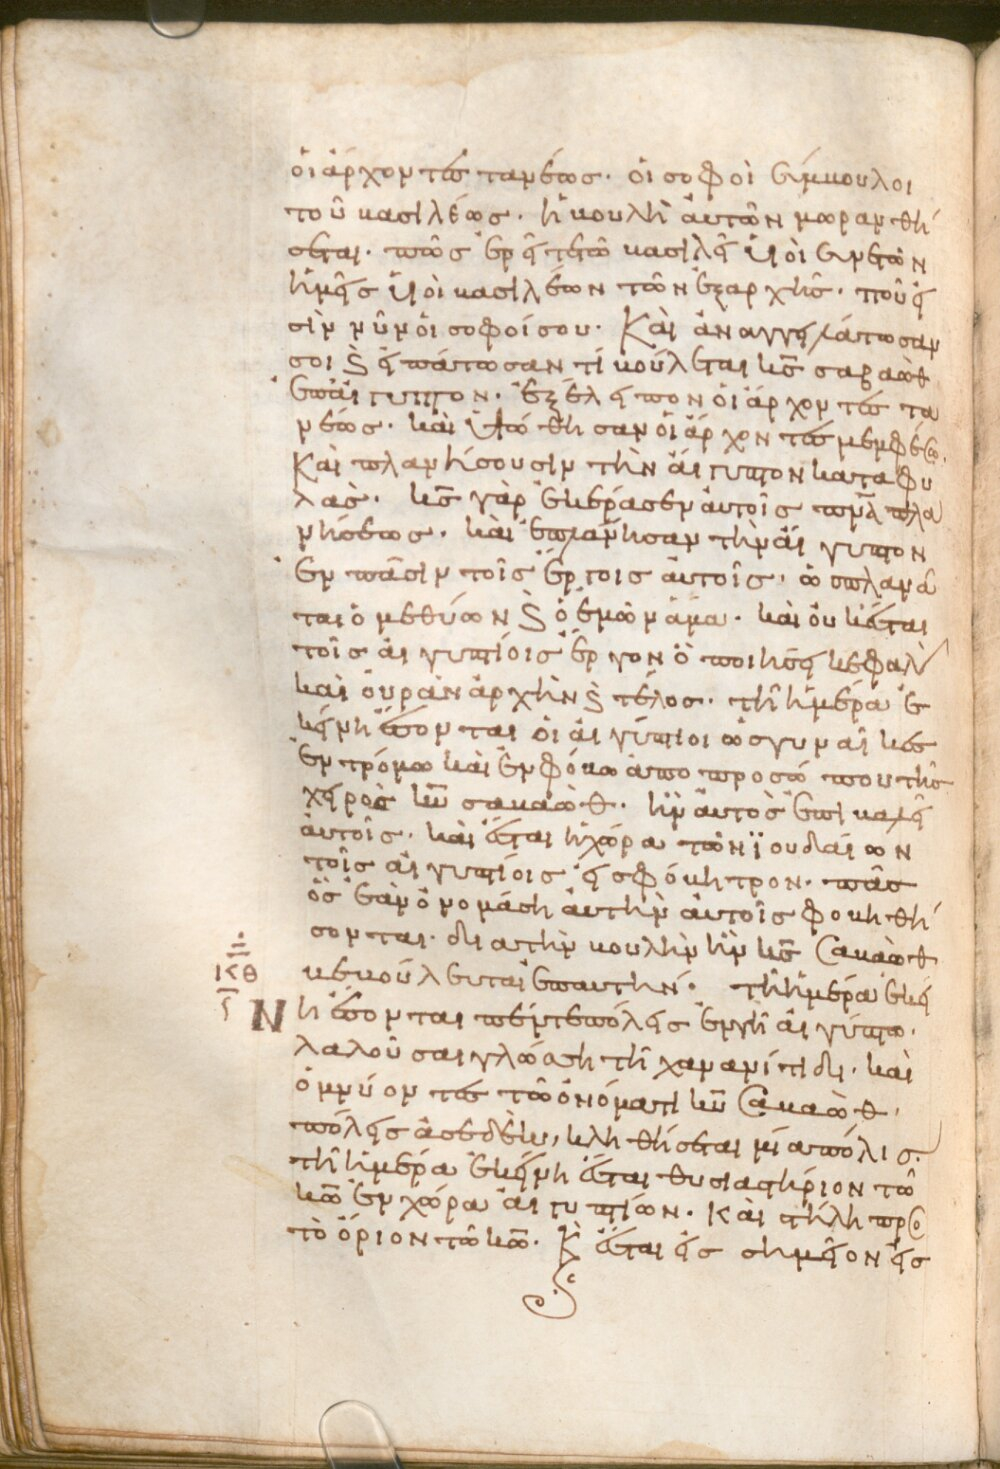 οἱ ἄρχοντες τανέως· οἱ σοφοὶ σύμβουλοι
τοῦ βασιλέως· ἡ βουλὴ ἀυτῶν μωρανθή
σεται· πῶς ἐρεῖτε τῶ βασιλεῖ ὑϊοὶ συνετῶν
ἡμεῖς ὑϊοὶ βασιλέων τῶν ἐξαρχῆς· ποῦ εἰ
σὶν νῦν ὁι σοφοί σου· Καὶ ἀναγγειλάτωσαν
σοι ϗ εἰπάτωσαν τί βούλεται κ̅ς̅ σαβαὼθ
ἐπ' ἄιγυπτον· ἐξέλειπον ὁι ἄρχοντες τα
νέως· καὶ ὑψώθησαν ὁι ἄρχοντες μέμφεως·
Καὶ πλανήσουσιν τὴν ἄιγυπτον κατα φυ
λάς· κ̅ς̅ γὰρ ἐκέρασεν ἀυτοῖς πν̅α̅ πλα
νήσεως· καὶ ἐπλάνησαν τὴν ἄιγυπτον
ἐν πᾶσιν τοῖς ἔργοις ἀυτοῖς· ὡς πλανᾶ
ται ὁ μεθύων ϗ ὁ ἐμῶν ἅμα· καὶ ὀυκ ἔσται
τοῖς ἀιγυπτίοις ἔργον ὃ ποιήσει κεφαλὴν
καὶ ὀυρὰν ἀρχὴν ϗ τέλος· τῆ ἡμέρα ἐ
κείνη ἔσονται ὁι ἀιγύπτιοι ὡς γυναῖκες
ἐν τρόμω καὶ ἐν φόβω ἀπο προσώπου τῆς
χειρὸς κ̅υ̅ σαβαώθ· ἣν ἀυτὸς ἐπιβαλεῖ
ἀυτοῖς· καὶ ἔσται ἡ χώρα τῶν ϊουδαίων
τοῖς ἀιγυπτίοις εἰς φόβητρον· πᾶς
ὃς ἐὰν ὀνομάση ἀυτὴν ἀυτοῖς φοβηθή
σονται· δια τὴν βουλὴν ἣν κ̅ς̅ Σαβαὼθ
βεβούλευται ἐπ αυτήν· τῆ ἡμέρα ἐκεί
Νη ἔσονται πέντε πόλεις ἐν γῆ ἀιγύπτω·
λαλοῦσαι γλώσση τῆ χανανίτιδι· καὶ
ὀμνύοντες τῶ ὀνόματι κ̅υ̅ Σαβαώθ·
πόλεις ἀσεδὲκ, κληθήσεται μία πόλις·
τῆ ἡμέρα ἐκείνη ἔσται θυσιαστήριον τῶ
κ̅ω̅ ἐν χώρα ἀιγυπτίων· Και στήλη προς
τὸ ὅριον τῶ κ̅ω̅· Κ ἔσται εἰς σημεῖον εἰς